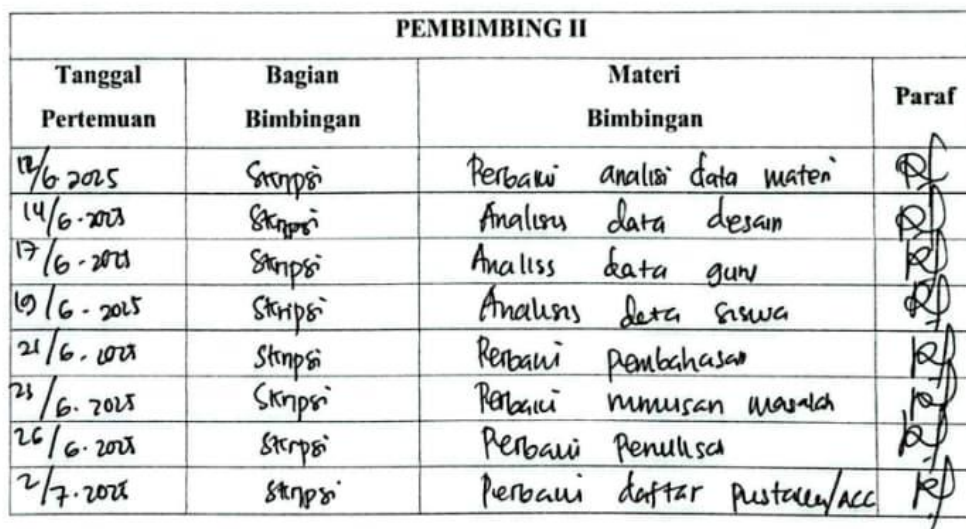 PEMBIMBING II
Tanggal Pertemuan Bagian Bimbingan Materi Bimbingan Paraf
12/6 2025 Skripsi Perbaiki analisi data materi
14/6 - 2025 Skripsi Analisis data desain
17/6 - 2025 Skripsi Analiss data guru
19/6 - 2025 Skripsi Analisis data siswa
21/6 . 2025 Skripsi Perbaiki pembahasan
23/6 . 2025 Skripsi Perbaiki rumusan masalah
26/6 . 2025 Skripsi Perbaiki Penulisan
2/7 . 2025 Skripsi Perbaiki daftar pustaka/ACC